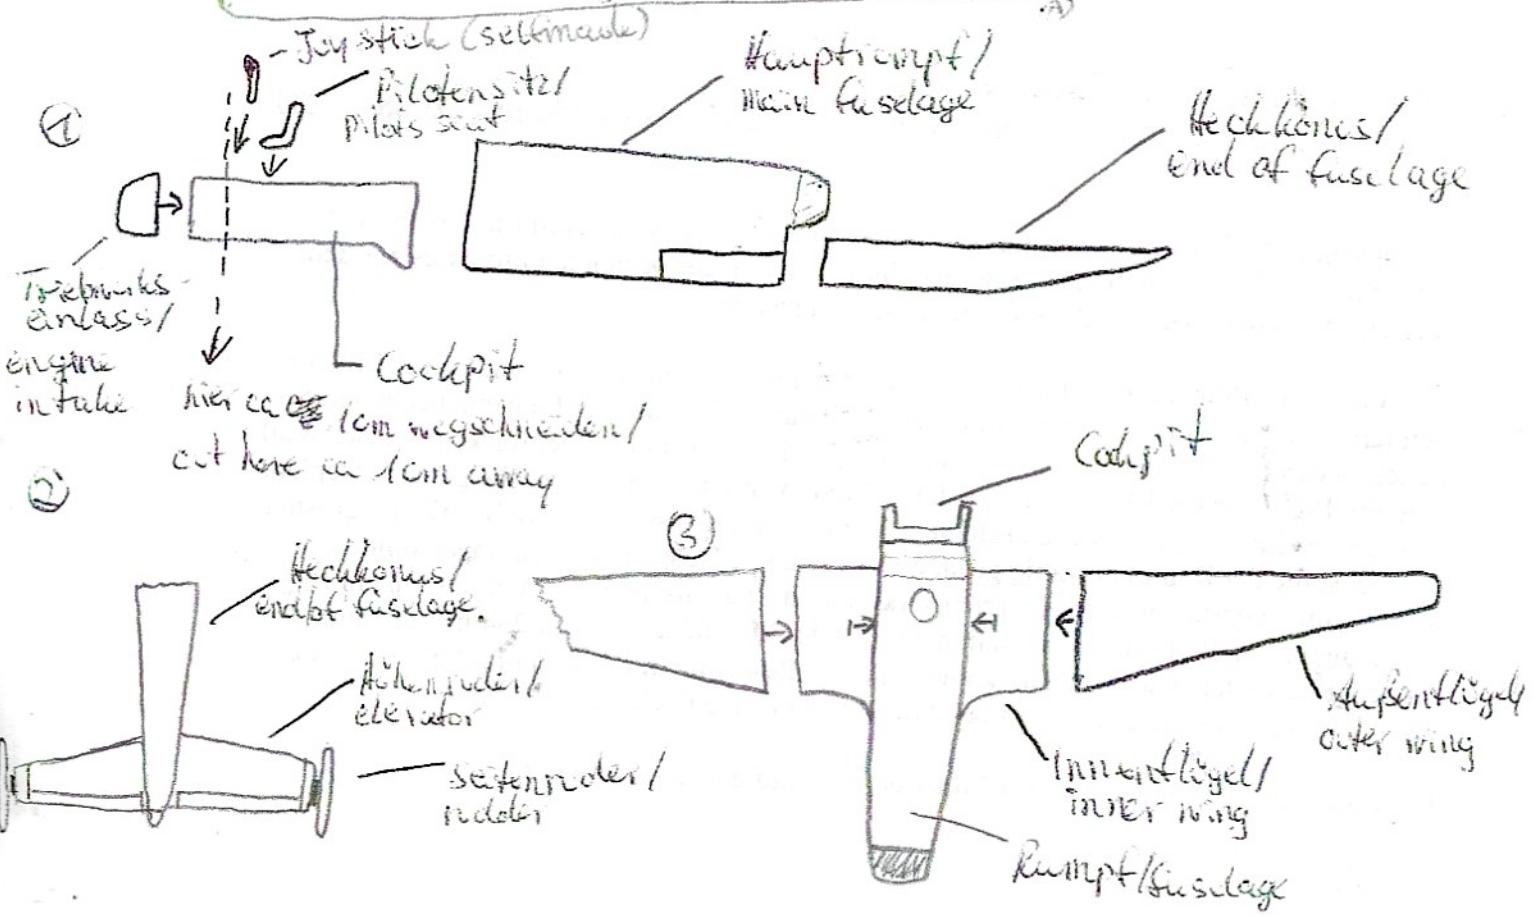 Joystick (selfmade)
Pilotensitz/
pilots seat
Hauptrumpf/
main fuselage
Heckkonus/
end of fuselage
1
Triebwerks-
einlass/
engine
intake
Cockpit
hier ca 1cm wegschneiden/
cut here ca 1cm away
2
Heckkonus/
end of fuselage.
Höhenruder/
elevator
Seitenruder/
rudder
3
Cockpit
Außenflügel/
outer wing
Innenflügel/
inner wing
Rumpf/fuselage